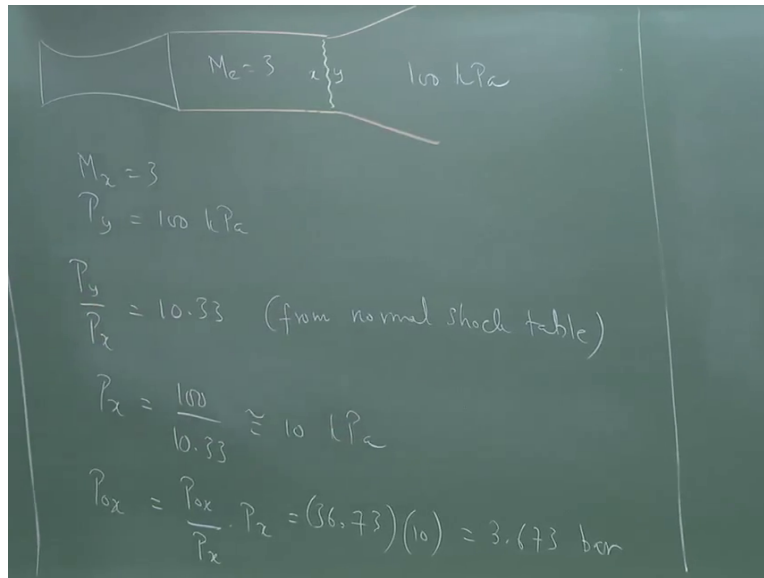 Me = 3 x y 100 kPa
Mx = 3
Py = 100 kPa
Py/Px = 10.33 (from normal shock table)
Px = 100/10.33 ≅ 10 kPa
Pox = Pox/Px . Px = (36.73)(10) = 3.673 bar